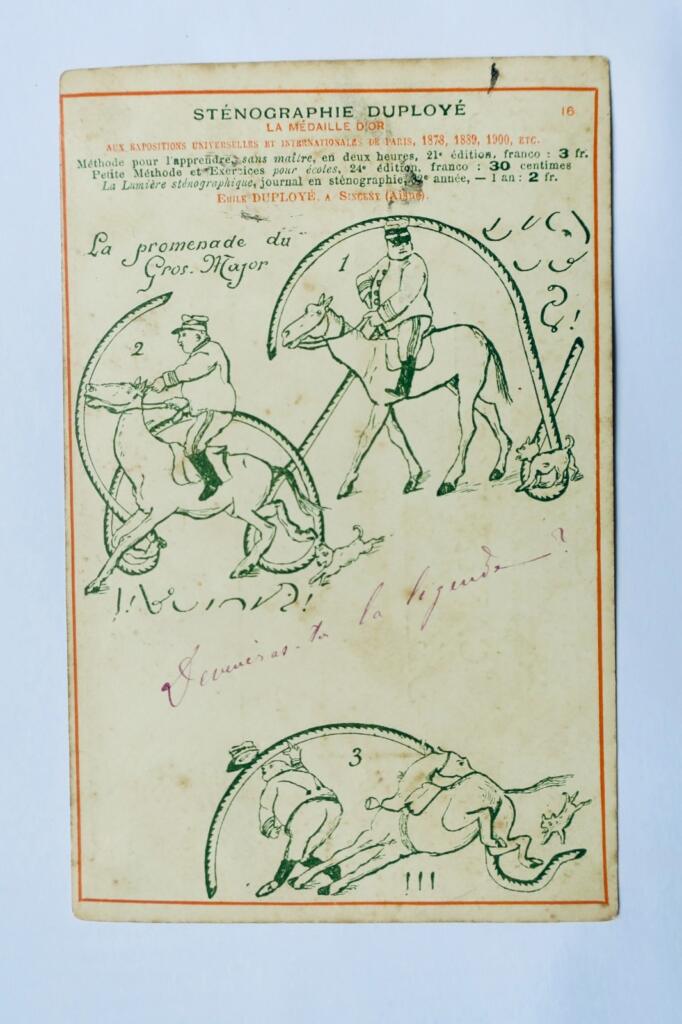 STÉNOGRAPHIE DUPLOYÉ
16
LA MÉDAILLE D'OR
AUX EXPOSITIONS UNIVERSELLES ET INTERNATIONALES DE PARIS, 1878, 1889, 1900, ETC.
Méthode pour l'apprendre, sans maître, en deux heures, 21e édition, franco : 3 fr.
Petite Méthode et Exercices pour écoles, 24e édition, franco : 30 centimes
La Lumière sténographique, journal en sténographie, année, — 1 an : 2 fr.
EMILE DUPLOYÉ, A SINCENY (Aisne).
La promenade du
Gros-Major
1
!
2
!!
!!
la légende ?
3
!!!